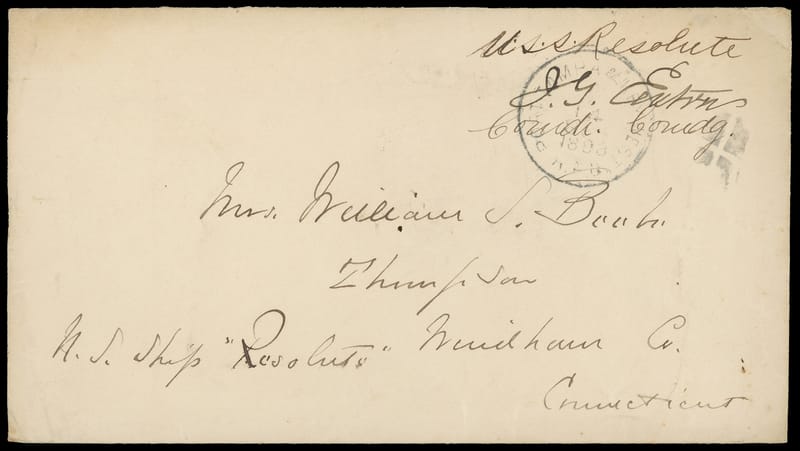 U.S.S. Resolute
J. G. Eaton
Comdr. Comdg.
TAMPA
1898
Mrs. William S. Booth
Thompson
U. S. Ship "Resolute" Windham Co.
Connecticut